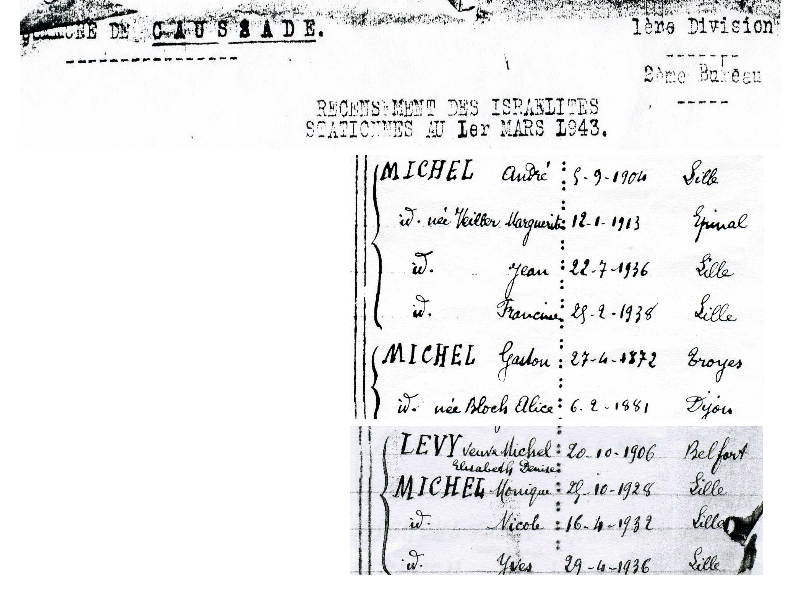 COMMUNE DE CAUSSADE.
1ère Division
2ème Bureau
RECENSEMENT DES ISRAELITES
STATIONNES AU 1er MARS 1943.
MICHEL André : 5-9-1904 Lille
id. née Veiller Marguerite : 12-1-1913 Epinal
id. Jean : 22-7-1936 Lille
id. Francine : 25-2-1938 Lille
MICHEL Gaston : 27-4-1872 Troyes
id. née Bloch Alice : 6-2-1881 Dijon
LEVY veuve Michel : 20-10-1906 Belfort
Elisabeth Denise
MICHEL Monique : 25-10-1928 Lille
id. Nicole : 16-4-1932 Lille
id. Yves 29-4-1936 Lille